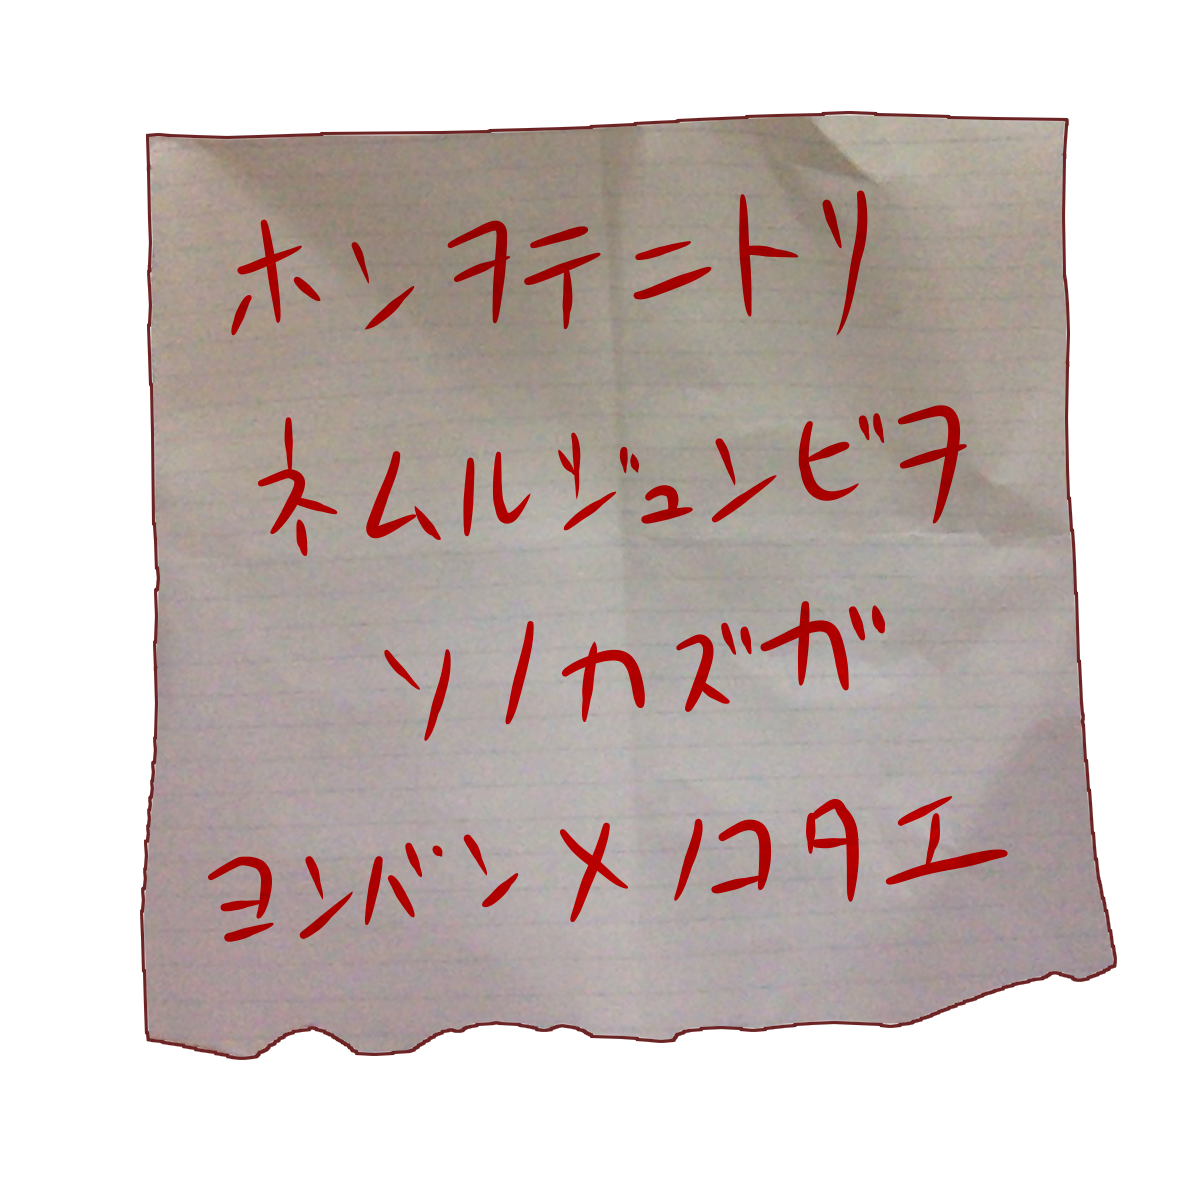 ホンヲテニトリ
ネムルジュンビヲ
ソノカズガ
ヨンバンメノコタエ